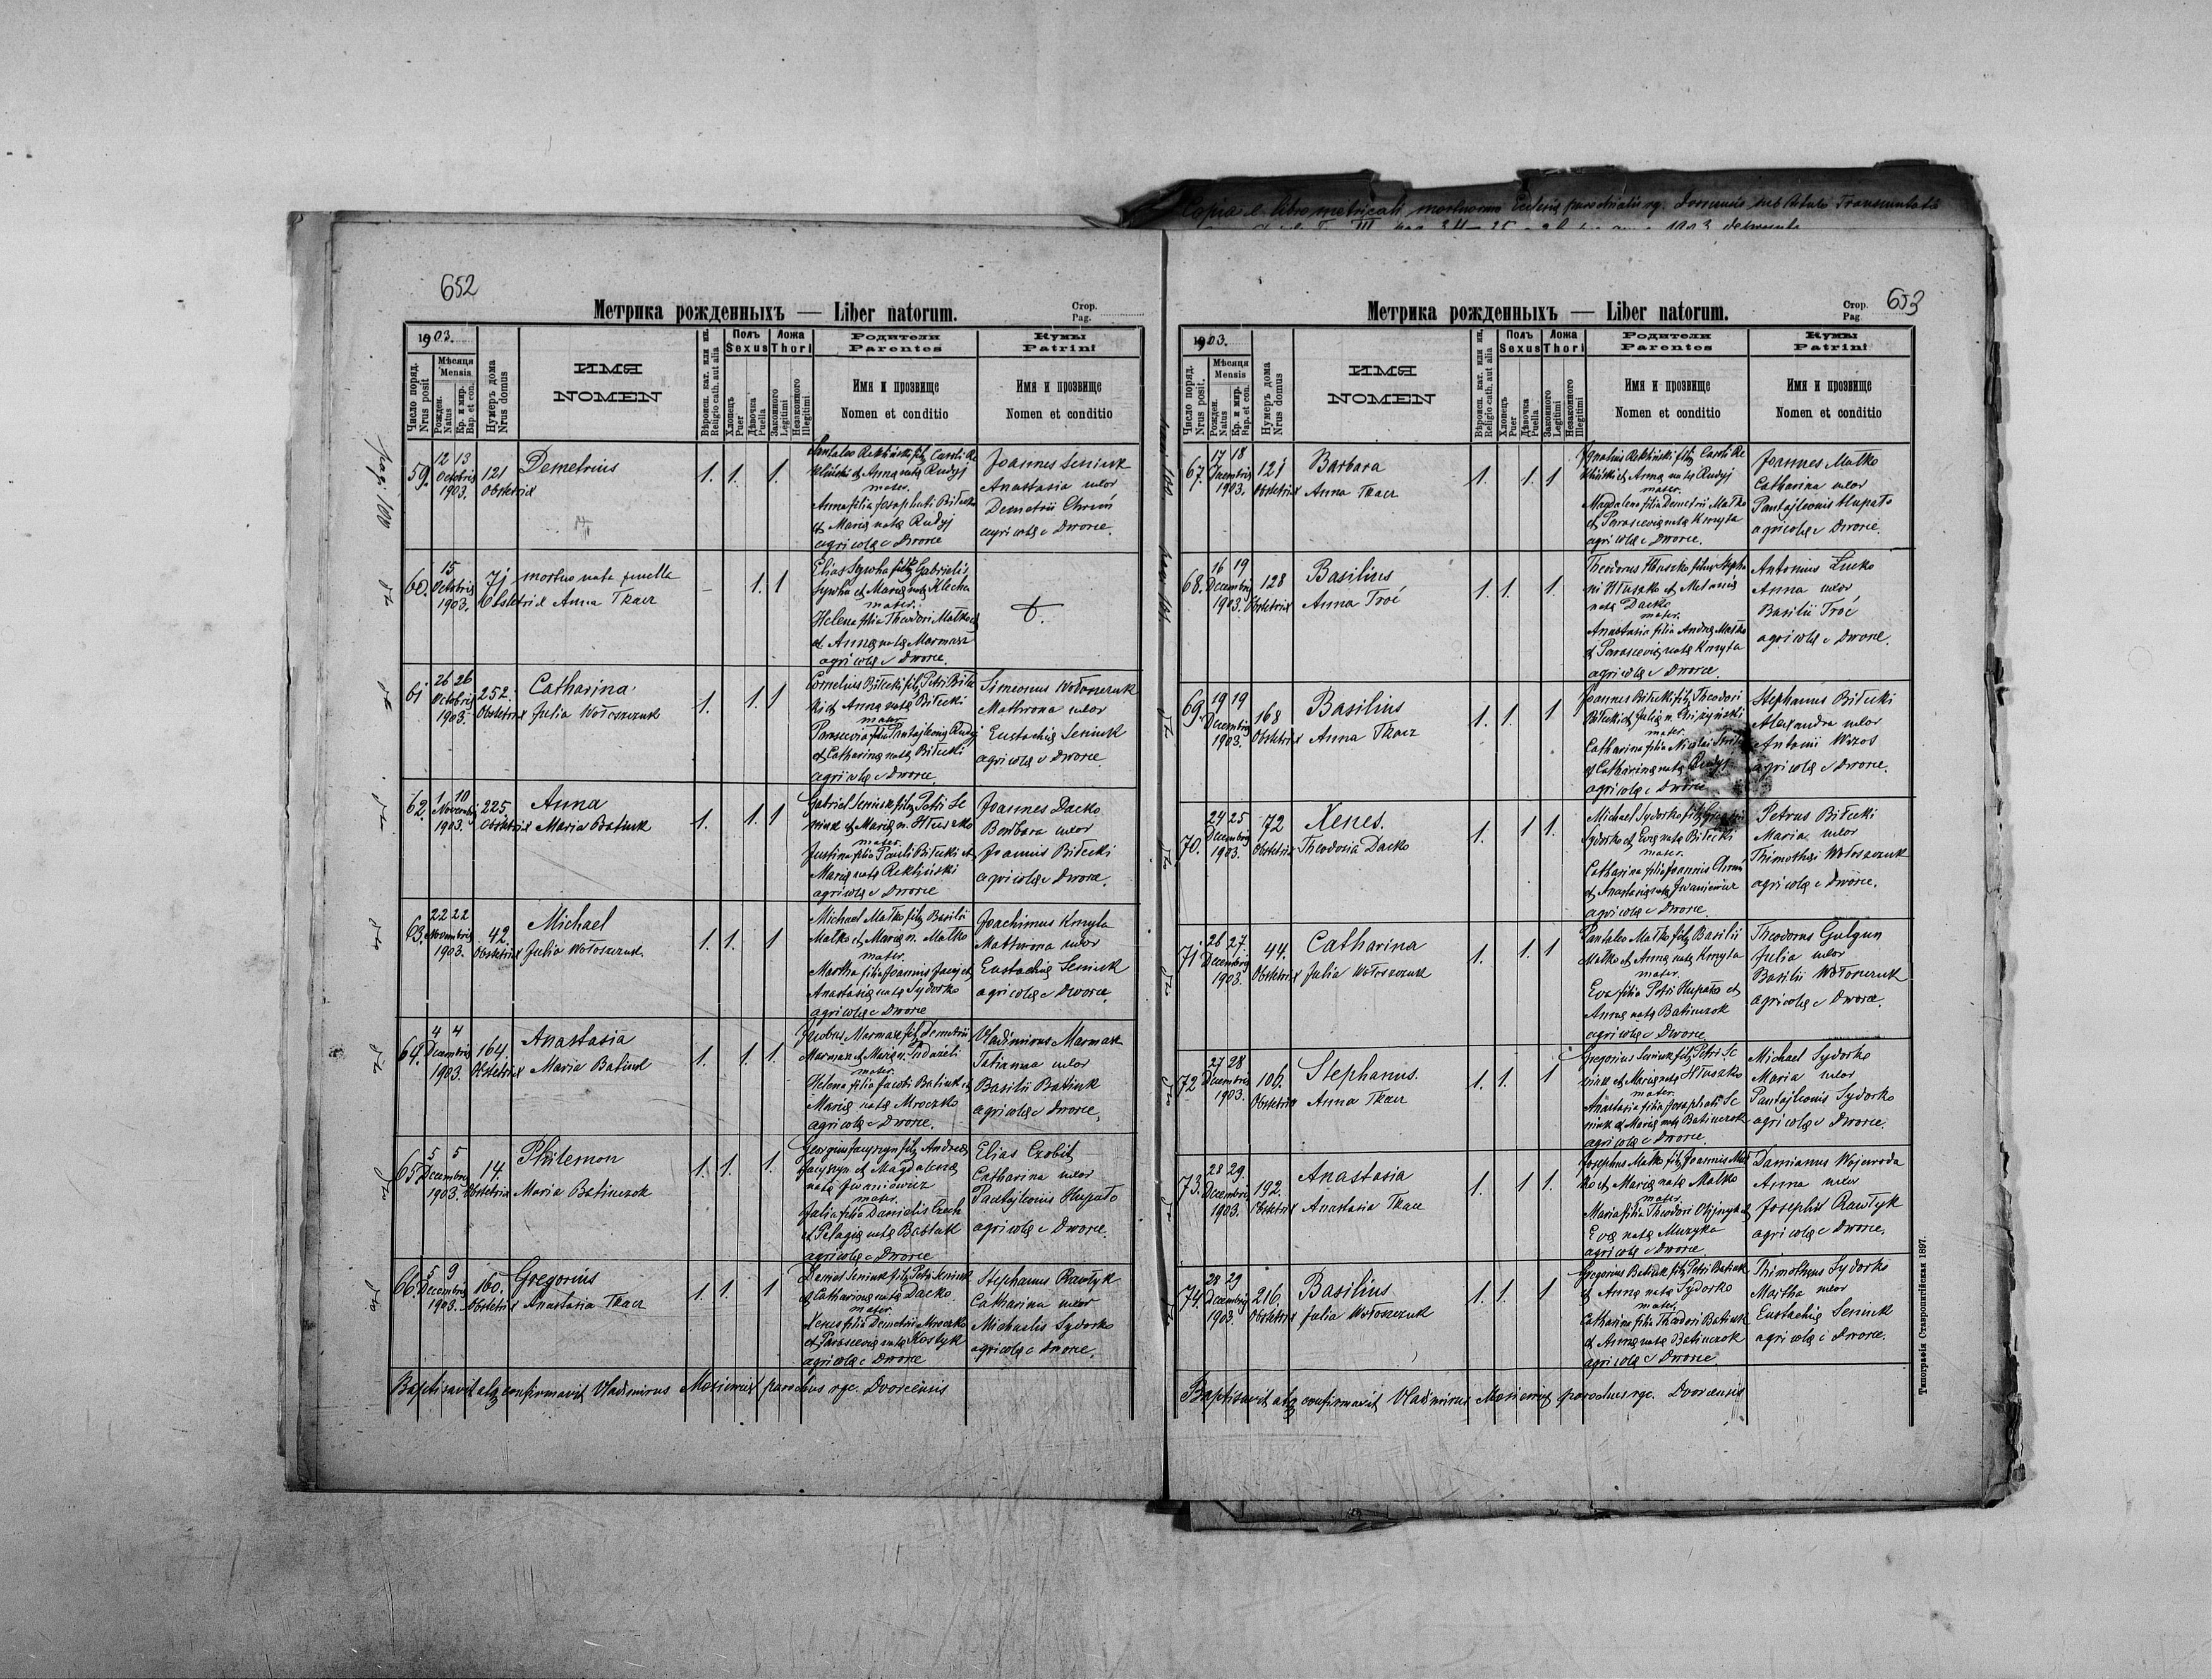 Copia e libro metricali mortuorum Ecclesiæ parochialis rg. Dorcensis sub titulo Transmutatæ
652
Метрика рожденныхъ — Liber natorum.
Стор.
Pag.
1903.
Число поряд.
Nrus posit
Мѣсяця
Mensis
Рожден.
Natus
Кр. и мир.
Bap. et con.
Нумеръ дома
Nrus domus
ИМЯ
NOMEN
Вѣроисп. кат. или ин.
Religio cath. aut alia
Полъ
Sexus
Хлопець
Puer
Дѣвочка
Puella
Ложа
Thori
Законного
Legitimi
Незаконного
Illegitimi
Родители
Parentes
Имя и прозвище
Nomen et conditio
Кумы
Patrini
Имя и прозвище
Nomen et conditio
59.
12 13
Octobris
1903.
121
Obstetrix
Demetrius
1. 1. 1
mater.
Anna filia Josaphati Biłecki
et Mariæ natæ Rudyj
agricolæ e Dworce
Joannes Seniuk
Anastasia uxor
Demetrii Chruń
agricolæ e Dworce.
60.
15
Octobris
1903.
71
mortuo nata puella
Obstetrix Anna Tkacz
– 1. 1
mater.
Helena filia Theodori Matko
et Annæ natæ Marmasz
agricolæ e Dworce.
61
26 26
Octobris
1903.
252.
Obstetrix
Catharina
Julia Wołoszczuk
1. 1. 1
Cornelius Biłecki fil. Petri Biłec
ki et Annæ natæ Biłecki
mater
Parascevia filia Pantajleonis Rudyj
et Catharinæ natæ Biłecki
agricolæ e Dworce
Simeonus Wołoszczuk
Mathrona uxor
Eustachiæ Seniuk
agricolæ e Dworce
62.
1 10
Novembris
1903.
225.
Obstetrix
Anna
Maria Batiuk
1. 1. 1
Gabriel Seniuk fil. Petri Se
niuk et Mariæ n. Hłuszko
mater.
Justina filia Pauli Biłecki et
Mariæ natæ Rekliński
agricolæ e Dworce
Joannes Dacko
Barbara uxor
Joannis Biłecki
agricolæ e Dworce.
63.
22 22
Novembris
1903.
42.
Obstetrix
Michael
Julia Wołoszczuk.
1. 1. 1
Michael Matko fil. Basilii
Matko et Mariæ n. Matko
mater.
Martha filia Joannis Jacuj et
Anastasiæ natæ Sydorko
agricolæ e Dworce
Joachimus Kmyta
Mathrona uxor
Eustachiæ Seniuk
agricolæ e Dworce.
64.
4 4
Decembris
1903.
164.
Obstetrix
Anastasia
Maria Batiuk
1. 1. 1.
mater.
Helena filia Jacobi Batiuk et
Mariæ natæ Mroczko
agricolæ e Dworce.
Vladimirus Marmasz
Tatianna uxor
Basilii Batiuk
agricolæ e Dworce.
65
5 5
Decembris
1903.
14.
Obstetrix
Philemon
Maria Batiuczok
1. 1. 1.
Georgius Jacyszyn fil. Andreæ
Jacyszyn et Magdalenæ
natæ Iwaniewicz
mater.
Julia filia Danielis Czech
et Pelagiæ natæ Babiak
agricolæ e Dworce
Elias Czobit
Catharina uxor
Pantajleonis Hupało
agricolæ e Dworce.
66.
5 9
Decembris
1903.
160.
Obstetrix
Gregorius
Anastasia Tkacz
1. 1. 1
Daniel Seniuk fil. Petri Seniuk
et Catharinæ natæ Dacko.
mater.
Xenes filia Demetrii Mroczko
et Parasceviæ natæ Kostyk
agricolæ e Dworce
Stephanus Pawłyk
Catharina uxor
Michaelis Sydorko
agricolæ e Dworce.
Baptisavit atq confirmavit Vladimirus Mosiewicz parochus rgc. Dvorcensis
653
Метрика рожденныхъ — Liber natorum.
Стор.
Pag.
1903.
Число поряд.
Nrus posit.
Мѣсяця
Mensis
Рожден.
Natus
Кр. и мир.
Bap. et con.
Нумеръ дома
Nrus domus
ИМЯ
NOMEN
Вѣроисп. кат. или ин.
Religio cath. aut alia
Полъ
Sexus
Хлопець
Puer
Дѣвочка
Puella
Ложа
Thori
Законного
Legitimi
Незаконного
Illegitimi
Родители
Parentes
Имя и прозвище
Nomen et conditio
Кумы
Patrini
Имя и прозвище
Nomen et conditio
67.
17 18
Decembris
1903.
121
Obstetrix
Barbara
Anna Tkacz
1. 1 1
Ignatius Rekliński fil. Caroli Re
kliński et Annæ natæ Rudyj
mater.
Magdalena filia Demetrii Matko
et Parasceviæ natæ Kmyta
agricolæ e Dworce.
Joannes Matko
Catharina uxor
Pantajleonis Hupało
agricolæ e Dworce.
68.
16 19
Decembris
1903.
128
Obstetrix
Basilius
Anna Troć
1. 1. 1.
Theodorus Hłuszko filius Stepha
ni Hłuszko et Melaniæ
natæ Dacko
mater.
Anastasia filia Andreæ Matko
et Parasceviæ natæ Kmyta
agricolæ e Dworce.
Antonius Łucko
Anna uxor
Basilii Troć
agricolæ e Dworce.
69
19 19
Decembris
1903.
168
Obstetrix
Basilius
Anna Tkacz
1. 1. 1
Joannes Biłecki fil. Theodori
mater.
et Catharinæ natæ Rudyj
agricolæ e Dworce
Stephanus Biłecki
Alexandra uxor
Antonii Wrzos
agricolæ e Dworce.
70.
24 25
Decembris
1903.
72
Obstetrix
Xenes.
Theodosia Dacko
1. 1 1.
Sydorko et Evæ natæ Biłecki
mater.
Catharina filia Joannis Chruń
et Anastasiæ natæ Iwaniewicz
agricolæ e Dworce.
Petrus Biłecki
Maria uxor
Thimothei Wołoszczuk
agricolæ e Dworce.
71
26 27.
Decembris
1903.
44.
Obstetrix
Catharina
Julia Wołoszczuk
1. 1 1
Pantaleo Matko fil. Basilii
Matko et Annæ natæ Kmyta
mater.
Eva filia Petri Hupało et
Annæ natæ Batiuczok
agricolæ e Dworce
Theodorus Gulgun
Julia uxor
Basilii Wołoszczuk
agricolæ e Dworce.
72
27 28
Decembris
1903.
106.
Obstetrix
Stephanus.
Anna Tkacz
1. 1. 1
Gregorius Seniuk fil. Petri Se
niuk et Mariæ natæ Hłuszko
mater.
Anastasia filia Josaphati Se
niuk et Mariæ natæ Batiuczok
agricolæ e Dworce.
Michael Sydorko
Maria uxor
Pantajleonis Sydorko
agricolæ e Dworce.
73.
28 29.
Decembris
1903.
192.
Obstetrix
Anastasia
Anastasia Tkacz
1. 1 1.
Josephus Matko fil. Joannis Mat
ko et Mariæ natæ Matko
mater.
Maria filia Theodori Olijnyk et
Evæ natæ Muzyka
agricolæ e Dworce
Damianus Wojewoda
Anna uxor
Josephii Pawłyk
agricolæ e Dworce.
74.
28 29
Decembris
1903.
216.
Obstetrix
Basilius
Julia Wołoszczuk
1. 1. 1
Gregorius Batiuk fil. Petri Batiuk
et Annæ natæ Sydorko
mater.
Catharina filia Theodori Batiuk
et Annæ natæ Batiuczok
agricolæ e Dworce
Thimotheus Sydorko
Martha uxor
Eustachiæ Seniuk
agricolæ e Dworce.
Baptisavit atq confirmavit Vladimirus Mosiewicz parochus rgc. Dvorcensis
Типографія Ставропигійская 1897.